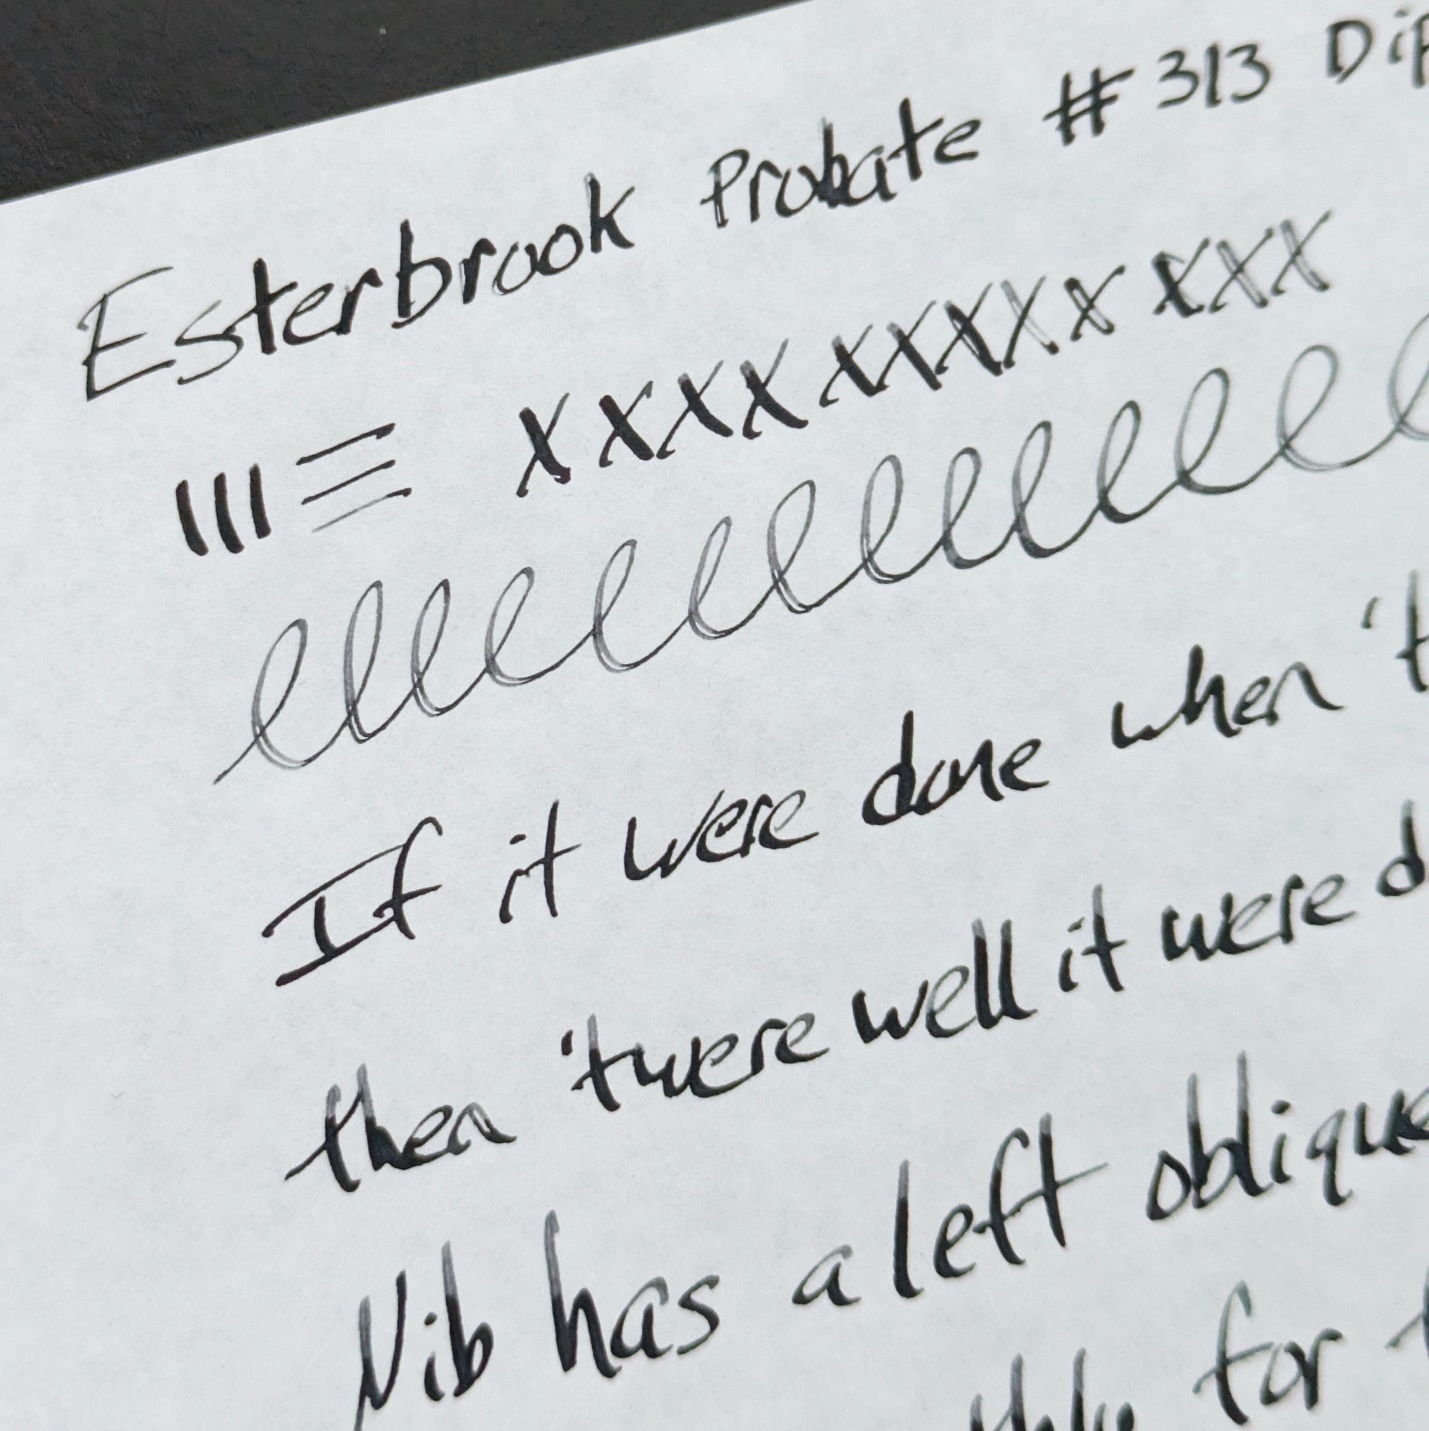 Esterbrook Probate #313 Dip
III≡ XXXX XXXXX XXXX
If it were done when 't
then 'twere well it were d
Nib has a left oblique
for t